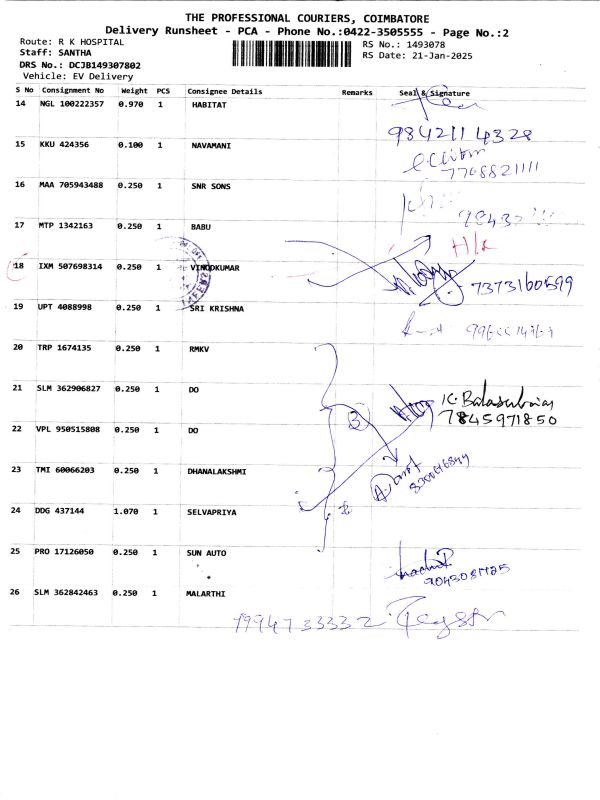 THE PROFESSIONAL COURIERS, COIMBATORE
Delivery Runsheet - PCA - Phone No.:0422-3505555 - Page No.:2
Route: R K HOSPITAL
RS No.: 1493078
Staff: SANTHA
RS Date: 21-Jan-2025
DRS No.: DCJB149307802
Vehicle: EV Delivery
S No Consignment No Weight PCS Consignee Details Remarks Seal & Signature
14 NGL 100222357 0.970 1 HABITAT
9842114328
15 KKU 424356 0.100 1 NAVAMANI
7708821111
16 MAA 705943488 0.250 1 SNR SONS
17 MTP 1342163 0.250 1 BABU
H/R
18 IXM 507698314 0.250 1 VINODKUMAR
7373160599
19 UPT 4088998 0.250 1 SRI KRISHNA
20 TRP 1674135 0.250 1 RMKV
21 SLM 362906827 0.250 1 DO
3
7845971850
22 VPL 950515808 0.250 1 DO
23 TMI 60066203 0.250 1 DHANALAKSHMI
24 DDG 437144 1.070 1 SELVAPRIYA
25 PRO 17126050 0.250 1 SUN AUTO
26 SLM 362842463 0.250 1 MALARTHI
7994733332